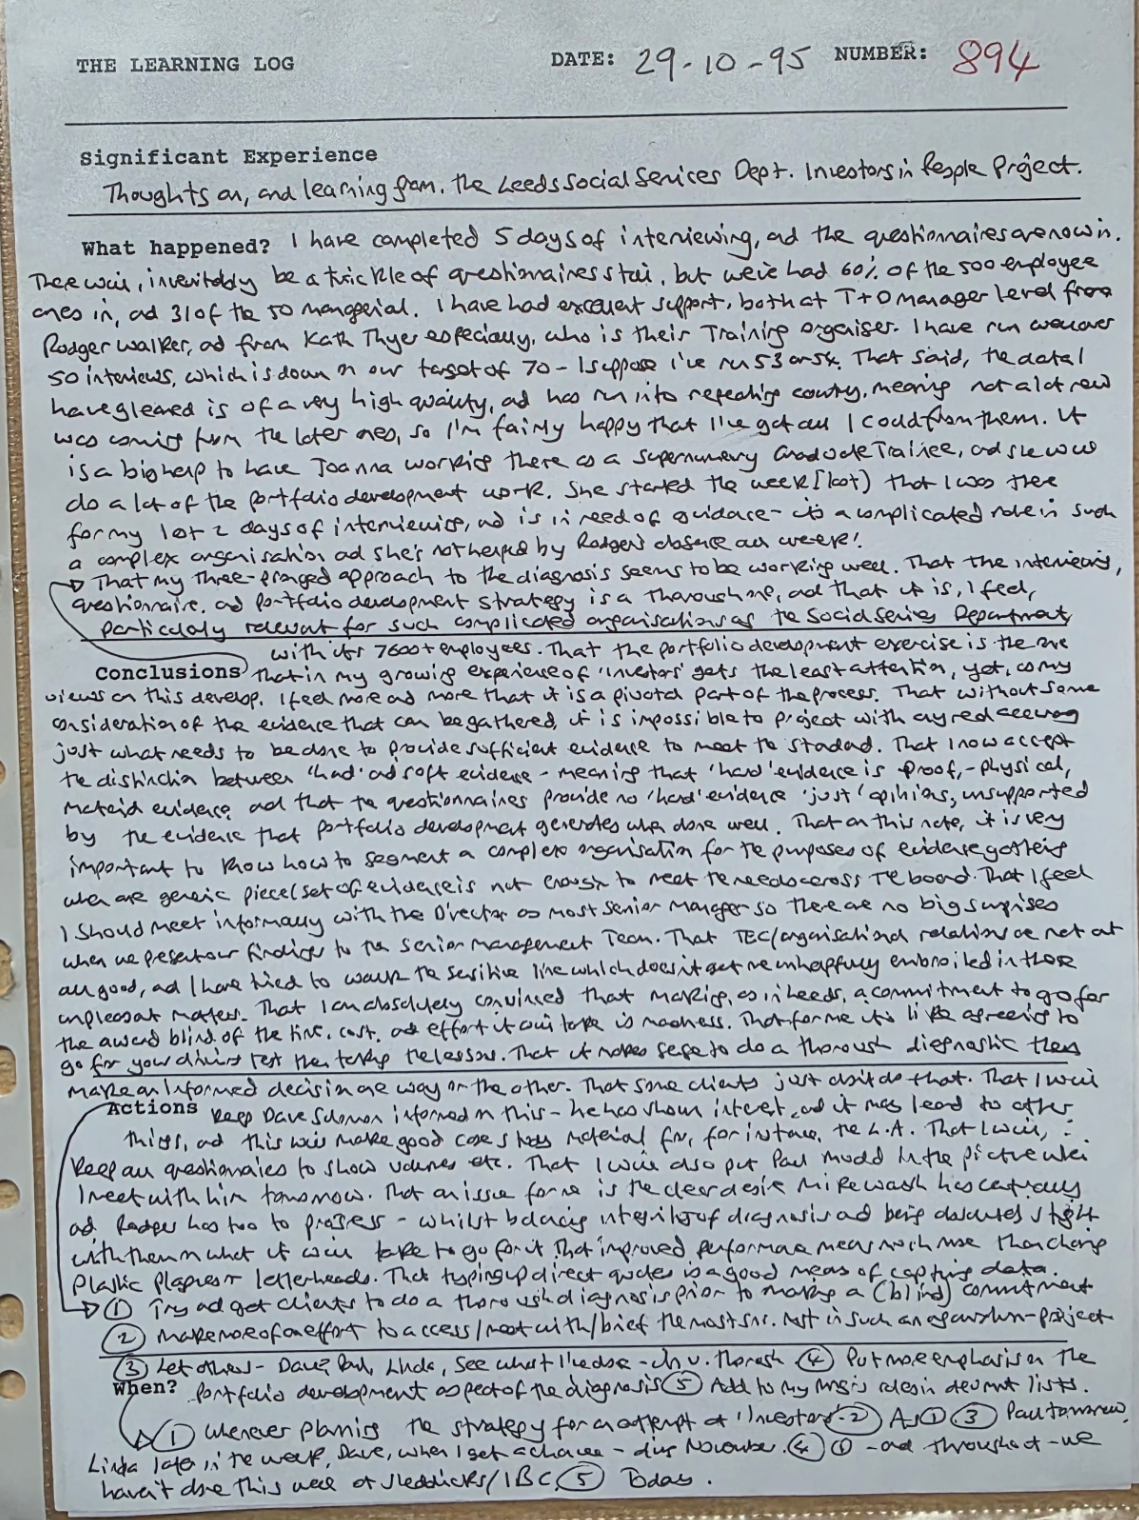 THE LEARNING LOG DATE: 29-10-95 NUMBER: 894
Significant Experience
Thoughts on, and learning from, the Leeds Social Services Dept. Investors in People Project.
What happened? I have completed 5 days of interviewing, and the questionnaires are now in.
There will, inevitably be a trickle of questionnaires still, but we've had 60% of the 500 employee
ones in, and 31 of the 50 managerial. I have had excellent support, both at T+D manager level from
Rodger Walker, and from Kath Thyer especially, who is their Training organiser. I have run well over
50 interviews, which is down on our target of 70 - I suppose I've run 53 or 54. That said, the data I
have gleaned is of a very high quality, and has run into repeating country, meaning not a lot new
was coming from the later ones, so I'm fairly happy that I've got all I could from them. It
is a big help to have Joanna working there as a supernumery Graduate Trainee, and she will
do a lot of the portfolio development work. She started the week [last] that I was there
for my last 2 days of interviewing, and is in need of guidance - it's a complicated role in such
a complex organisation and she's not helped by Rodger's absence all week!
That my three-pronged approach to the diagnosis seems to be working well. That the interviewing,
questionnaire, and portfolio development strategy is a thorough one, and that it is, I feel,
particularly relevant for such complicated organisations as the Social Services Department,
with its 7600+ employees. That the portfolio development exercise is the one
Conclusions that in my growing experience of 'Investors' gets the least attention, yet, as my
views on this develop, I feel more and more that it is a pivotal part of the process. That without some
consideration of the evidence that can be gathered, it is impossible to project with any real accuracy
just what needs to be done to provide sufficient evidence to meet the standard. That I now accept
the distinction between 'hard' and soft evidence - meaning that 'hard' evidence is proof, - physical,
material evidence, and that the questionnaires provide no 'hard' evidence 'just' opinions, unsupported
by the evidence that portfolio development generates when done well. That on this note, it is very
important to know how to segment a complex organisation for the purposes of evidence gathering
when one generic piece/set of evidence is not enough to meet the needs across the board. That I feel
I should meet informally with the Director as most senior manager so there are no big surprises
when we present our findings to the Senior Management Team. That TEC/organisational relations are not at
all good, and I have tried to walk the sensitive line which doesn't get me unhelpfully embroiled in those
unpleasant matters. That I am absolutely convinced that making, as in Leeds, a commitment to go for
the award blind of the time, cost, and effort it will take is madness. That for me it's like agreeing to
go for your driving test then taking the lessons. That it makes sense to do a thorough diagnostic then
make an informed decision one way or the other. That some clients just don't do that. That I will
Actions keep Dave Solomon informed on this - he has shown interest, and it may lead to other
things, and this will make good case study material for, for instance, the L.A. That I will,
keep all questionnaires to show volumes etc. That I will also put Paul Mudd in the picture when
I meet with him tomorrow. That an issue for me is the clear desire Mike Wash has certainly
and Rodger has too to progress - whilst balancing integrity of diagnosis and being absolutely straight
with them on what it will take to go for it. That improved performance means much more than having
plastic plaques or letterheads. That typing up direct quotes is a good means of capturing data.
① Try and get clients to do a thorough diagnosis prior to making a (blind) commitment
② Make more of an effort to access/meet with/brief the most snr. Mgt in such an organisation-project
③ Let others - Dave, Paul, Linda, see what I've done - it's v. thorough ④ Put more emphasis on the
When? portfolio development aspect of the diagnosis ⑤ Add to my lists.
① Whenever planning the strategy for an attempt at 'Investors' ② As ① ③ Paul tomorrow,
Linda later in the week, Dave, when I get a chance - during November. ④ ① - and throughout - we
haven't done this well at IBC ⑤ Today.